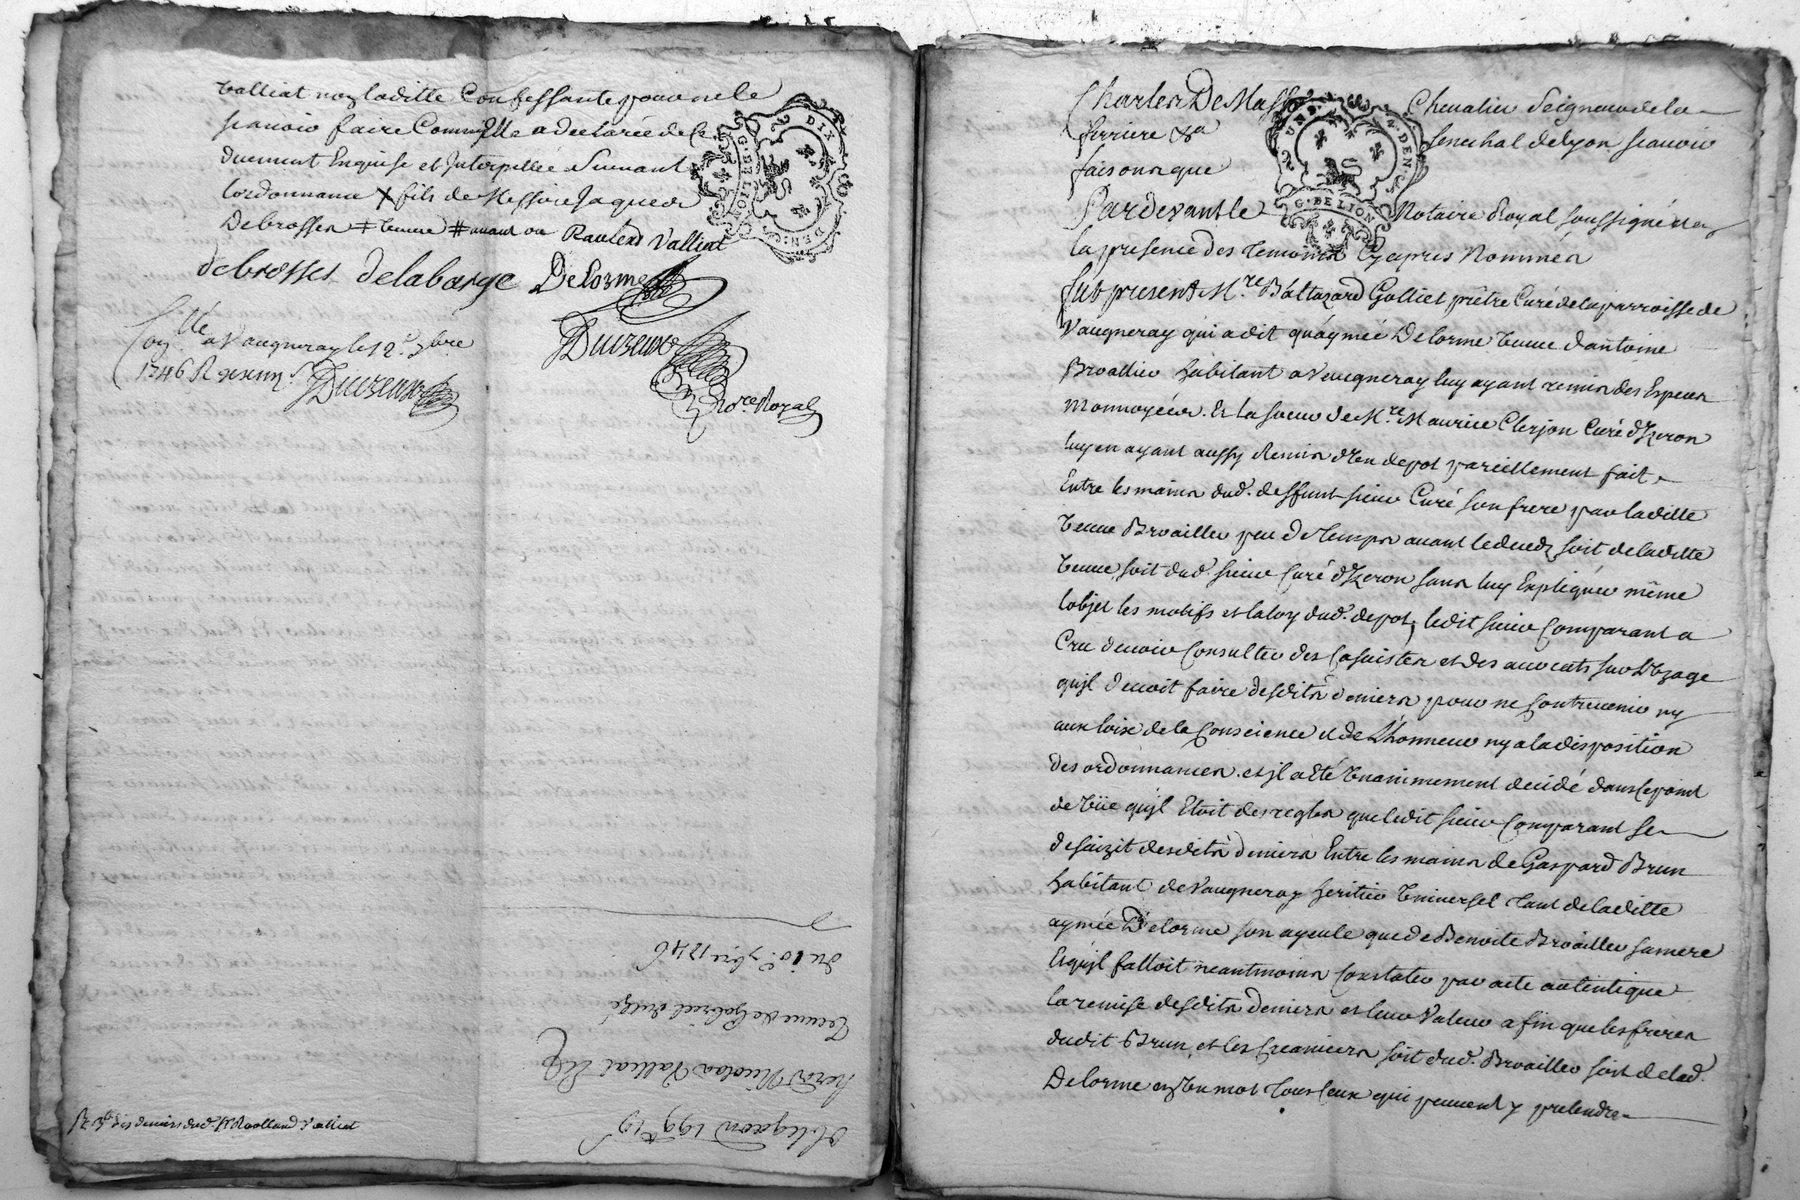 Valliat non laditte Confessante pour ne le
scavoir faire Comme Elle a declarée de Ce
duement Enquise et Interpellée Suivant
lordonnance X fils de Messire Jaques
Debrosses ‡ veuve # avant ou Raulend Valliat
debrosses delabarge Delorme
Duvzeure
Con.lle a Vaugneray le 12.e 9bre
1746 R
Duvzeure
No.re Royal
Obligâon 199ᵗᵗ 19ˢ
heird Nicolas Valliat
Veuve de Gabriel
du 10.e 9bre 1746
les deniers dud. Sr Roolland Valliat
DIX DEN:
G. DE LION
Charles De Masso Chevalier Seigneur de la
ferriere &a Senechal de Lyon scavoir
faisons que
UN S. 4. DEN.
G. DE LION
Pardevant le Notaire Royal soussigné et en
la presence des temoins Cy apres Nommés
fut present M.re Baltazard Galliet prêtre Curé de la parroisse de
Vaugneray qui a dit qu'aymée Delorme Veuve d'antoine
Broallier habitant a Vaugneray luy ayant remis des Especes
Monnoyées. Et la soeur de M.re Maurice Clerjon Curé d'Izeron
luy en ayant aussy Remis d'Un depot pareillement fait
Entre les mains dud. deffunt sieur Curé son frere par laditte
Veuve Broaillier peu de temps avant le deceds soit de laditte
Veuve, soit dud. sieur Curé d'Izeron sans luy Expliquer même
lobjet les motifs et la loy dud. depot, ledit sieur Comparant a
Cru devoir Consulter des Casuistes et des avocats sur l'Uzage
qu'jl devoit faire desdits deniers pour ne Contrevenir ny
aux loix de la Conscience et de l'honneur ny a la disposition
des ordonnances. et jl a été Unanimement decidé dans ce point
de Vüe qu'jl Etoit des regles que ledit sieur Comparant se
desaizit desdits deniers Entre les mains de Gaspard Brun
habitant de Vaugneray heritier Universel tant de laditte
aymée Delorme son ayeule que de Benoite Broallier sa mere
Et qu'jl falloit neantmoins Constater par acte autentique
la remise desdits deniers et leur Valeur afin que les freres
dudit Brun, et les Creanciers soit dud. Broaillier soit de lad.
Delorme en Un mot tous Ceux qui peuvent y pretendre